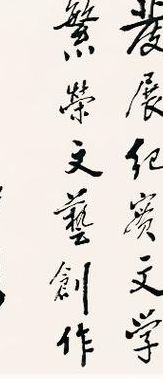 發展纪實文学
繁榮文藝創作